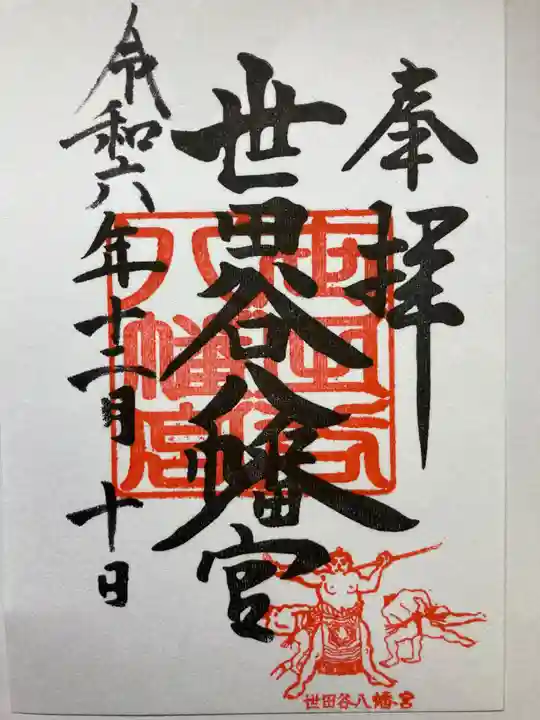 奉拝
世田谷八幡宮
令和六年十二月十日
世田谷
八幡宮
世田谷八幡宮